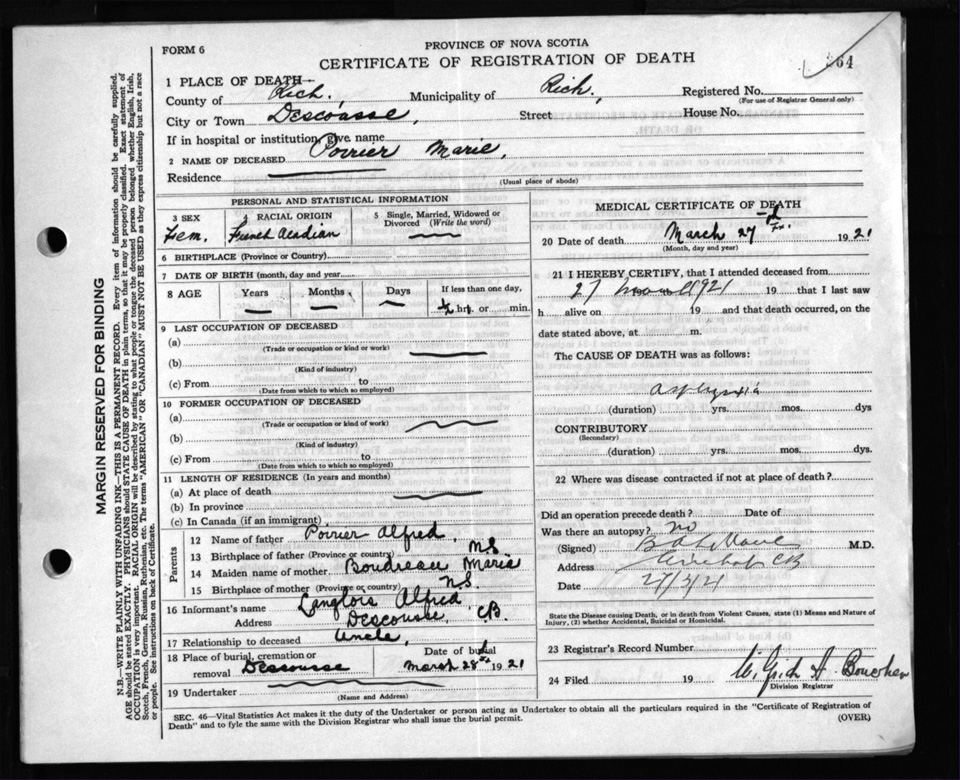 FORM 6
PROVINCE OF NOVA SCOTIA
CERTIFICATE OF REGISTRATION OF DEATH
64
1 PLACE OF DEATH—
County of Rich, Municipality of Rich, Registered No.
(For use of Registrar General only)
City or Town Descousse, Street House No.
If in hospital or institution, give name
2 NAME OF DECEASED Poirier Marie,
Residence
(Usual place of abode)
PERSONAL AND STATISTICAL INFORMATION
3 SEX 4 RACIAL ORIGIN 5 Single, Married, Widowed or Divorced (Write the word)
Fem. French Acadian —
6 BIRTHPLACE (Province or Country)
7 DATE OF BIRTH (month, day and year)
8 AGE Years Months Days If less than one day,
— — — ½ hrs. or min.
9 LAST OCCUPATION OF DECEASED
(a)
(Trade or occupation or kind of work)
(b)
(Kind of industry)
(c) From to
(Date from which to which so employed)
10 FORMER OCCUPATION OF DECEASED
(a)
(Trade or occupation or kind of work)
(b)
(Kind of industry)
(c) From to
(Date from which to which so employed)
11 LENGTH OF RESIDENCE (In years and months)
(a) At place of death
(b) In province
(c) In Canada (if an immigrant)
Parents
12 Name of father Poirier Alfred,
13 Birthplace of father (Province or country) N.S.
14 Maiden name of mother Boudreau Maria
15 Birthplace of mother (Province or country) N.S.
16 Informant's name Langlois Alfred
Address Descousse, CB.
17 Relationship to deceased Uncle,
18 Place of burial, cremation or removal Descousse
Date of burial March 28 1921
19 Undertaker
(Name and Address)
MEDICAL CERTIFICATE OF DEATH
20 Date of death March 27 1921
(Month, day and year)
21 I HEREBY CERTIFY, that I attended deceased from
27 March 1921 19 that I last saw
h alive on 19 and that death occurred, on the
date stated above, at m.
The CAUSE OF DEATH was as follows:
asphyxia
(duration) yrs. mos. dys
CONTRIBUTORY
(Secondary)
(duration) yrs. mos. dys.
22 Where was disease contracted if not at place of death?
Did an operation precede death? Date of
Was there an autopsy? no
(Signed) M.D.
Address CB
Date 27/3/21
State the Disease causing Death, or in death from Violent Causes, state (1) Means and Nature of
Injury, (2) whether Accidental, Suicidal or Homicidal.
23 Registrar's Record Number
24 Filed 19
Division Registrar
SEC. 46—Vital Statistics Act makes it the duty of the Undertaker or person acting as Undertaker to obtain all the particulars required in the "Certificate of Registration of
Death" and to fyle the same with the Division Registrar who shall issue the burial permit.
(OVER)
MARGIN RESERVED FOR BINDING
N.B.—WRITE PLAINLY WITH UNFADING INK—THIS IS A PERMANENT RECORD. Every item of information should be carefully supplied.
AGE should be stated EXACTLY. PHYSICIANS should STATE CAUSE OF DEATH in plain terms, so that it may be properly classified. Exact statement of
OCCUPATION is very important. RACIAL ORIGIN will be described by stating to what people or tongue the deceased person belonged whether English, Irish,
Scotch, French, German, Russian, Ruthenian, etc. The terms "AMERICAN" OR "CANADIAN" MUST NOT BE USED as they express citizenship but not a race
or people. See instructions on back of Certificate.